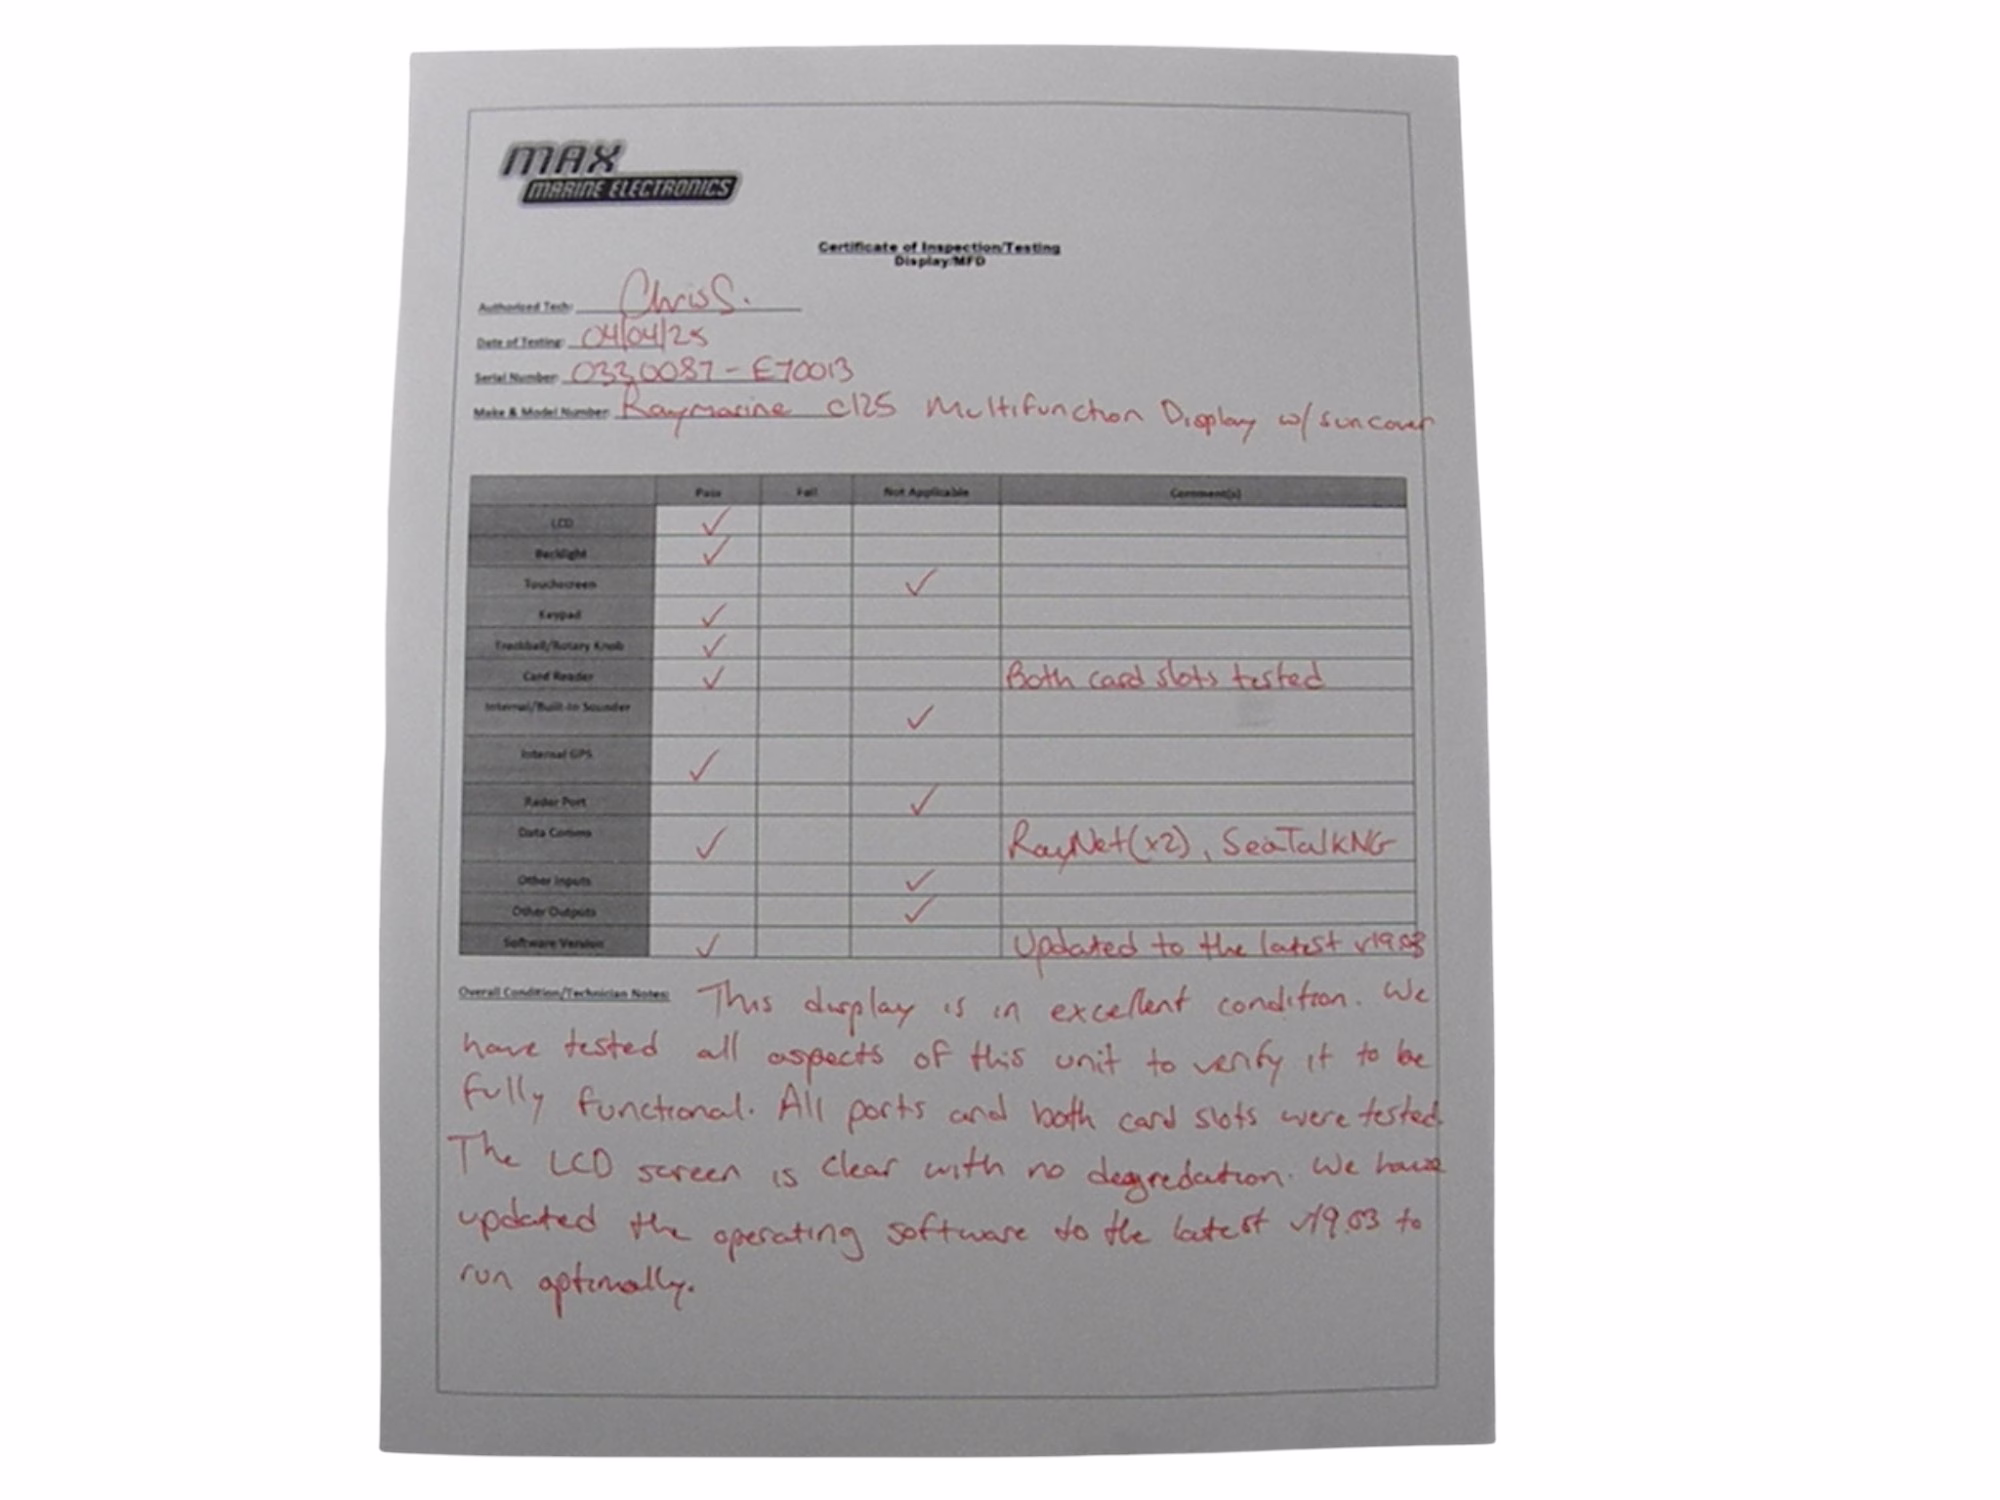 MAX
MARINE ELECTRONICS
Certificate of Inspection/Testing
Display/MFD
Authorized Tech: Chris S.
Date of Testing: 04/04/25
Serial Number: 0330087 - E70013
Make & Model Number: Raymarine c125 Multifunction Display w/ suncover
Pass Fail Not Applicable Comment(s)
LCD ✓
Backlight ✓
Touchscreen ✓
Keypad ✓
Trackball/Rotary Knob ✓
Card Reader ✓ Both card slots tested
Internal/Built-In Sounder ✓
Internal GPS ✓
Radar Port ✓
Data Comms ✓ RayNet(x2), SeaTalkNG
Other Inputs ✓
Other Outputs ✓
Software Version ✓ Updated to the latest v19.03
Overall Condition/Technician Notes: This display is in excellent condition. We
have tested all aspects of this unit to verify it to be
fully functional. All ports and both card slots were tested.
The LCD screen is clear with no degredation. We have
updated the operating software to the latest v19.03 to
run optimally.